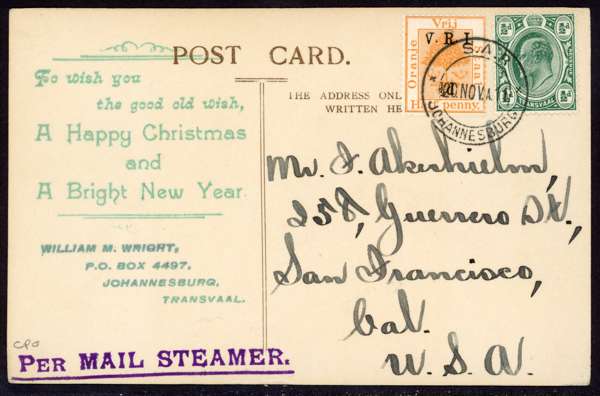 POST CARD.
To wish you
the good old wish,
A Happy Christmas
and
A Bright New Year.
WILLIAM M. WRIGHT,
P.O. BOX 4497,
JOHANNESBURG,
TRANSVAAL.
CPO
PER MAIL STEAMER.
THE ADDRESS ONL
WRITTEN HE
Vrij
V. R. I.
Oranje
penny.
TRANSVAAL
½d ½d
S.A.R
NOV
JOHANNESBURG
Mr. J.
258, Guerrero St.,
San Francisco,
Cal.
U.S.A.